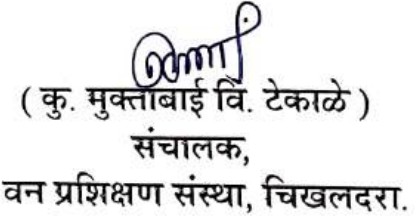 ( कु. मुक्ताबाई वि. टेकाळे )
संचालक,
वन प्रशिक्षण संस्था, चिखलदरा.